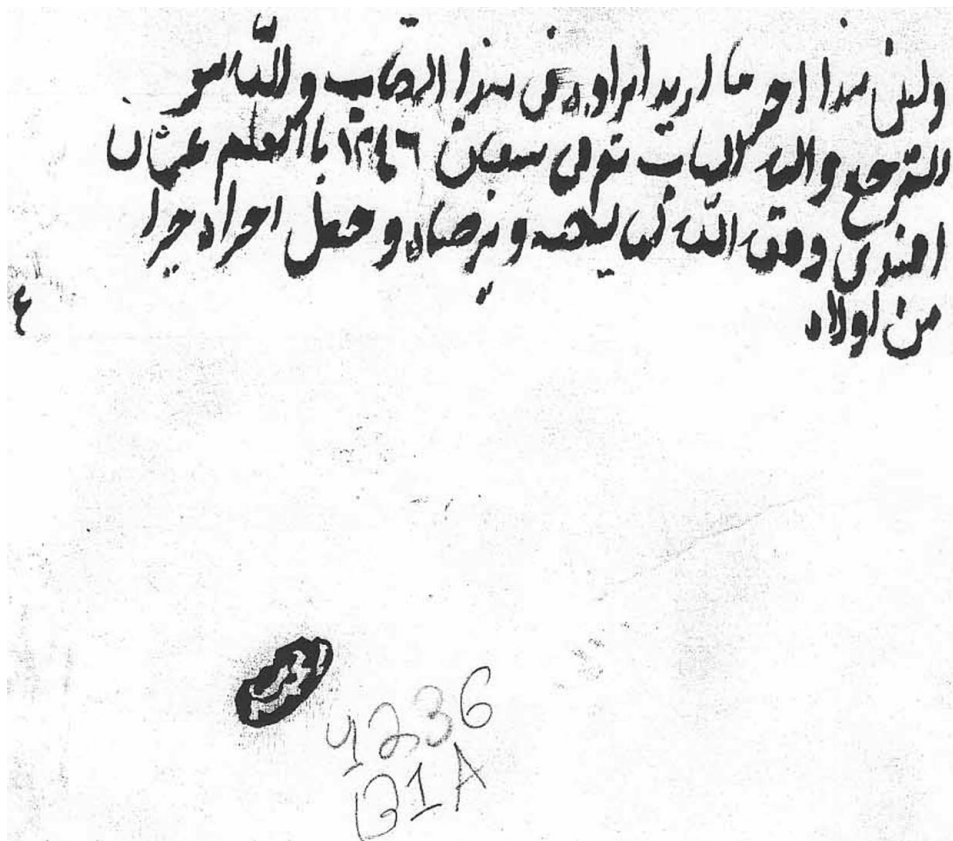 وليكن هذا اخر ما اريد ايراده في هذا الكتاب والله
المرجع واليه المآب تم في شعبان ١٢٤٦ بالقلم عثمان
افندى وفقه الله لما يحبه ويرضاه وجعل اخراه خيرا
من اولاه
4236
B1A